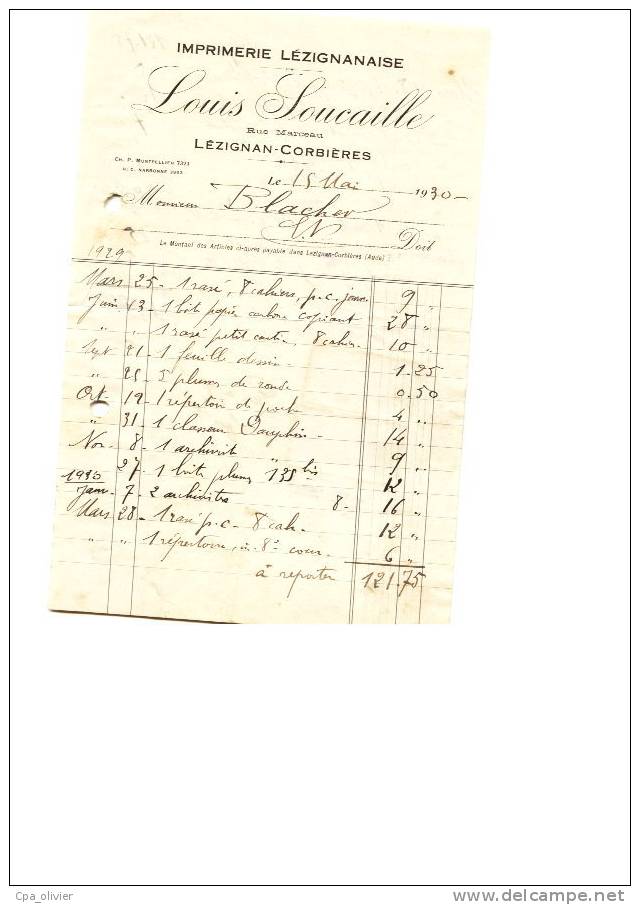 IMPRIMERIE LÉZIGNANAISE
Louis Soucaille
Rue Marceau
LÉZIGNAN-CORBIÈRES
CH. P. MONTPELLIER 7371
R. C. NARBONNE
Le 15 Mai 1930-
Monsieur Blacher
Doit
Le Montant des Articles ci-après payable dans Lézignan-Corbières (Aude)
1929
Mars 25 - 1 rasé, 8 cahiers, p.c. 9 "
Juin 13 - 1 boit papier carbone copiant 28 "
" " 1 rasé petit 8 cahier 10 "
Sept 21 - 1 feuille dessin 1.25
" 25 - 5 plumes de ronde 0.50
Oct. 19 - 1 répertoire de poche 4 "
" 31 - 1 classeur Dauphin 14 "
Nov - 8 - 1 archivit 9 "
" 27 - 1 boite plumes 135 bis 12 "
1930
Janv - 7 - 2 archivites 8 - 16 "
Mars 28 - 1 rasé p.c. 8 cah - 12 "
" " 1 répertoire, in 8° 6 "
à reporter 121.75
Cpa_olivier
delcampe.net